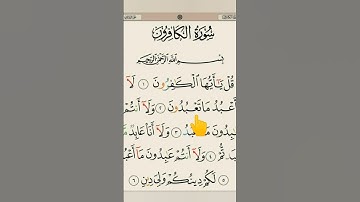 سُورَةُ الْكَافِرُونَ
بِسْمِ اللَّهِ الرَّحْمَٰنِ الرَّحِيمِ
قُلْ يَٰٓأَيُّهَا ٱلْكَٰفِرُونَ ١ لَآ
أَعْبُدُ مَا تَعْبُدُونَ ٢ وَلَآ أَنتُمْ
عَٰبِدُونَ مَآ أَعْبُدُ ٣ وَلَآ أَنَا۠ عَابِدٌ مَّا
عَبَدتُّمْ ٤ وَلَآ أَنتُمْ عَٰبِدُونَ مَآ أَعْبُدُ
٥ لَكُمْ دِينُكُمْ وَلِىَ دِينِ ٦